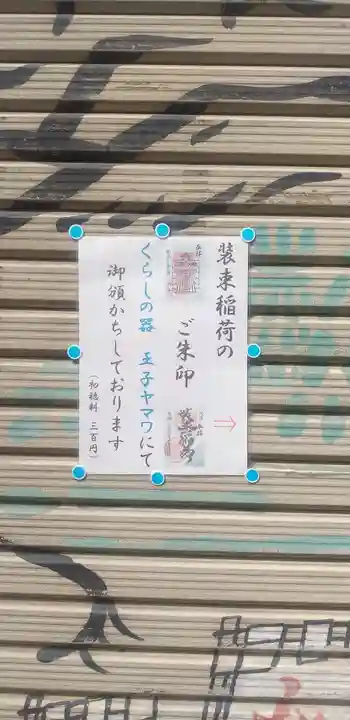 装束稲荷の
ご朱印
⇨
くらしの器 王子ヤマワにて
御頒かちしております
(初穂料 三百円)